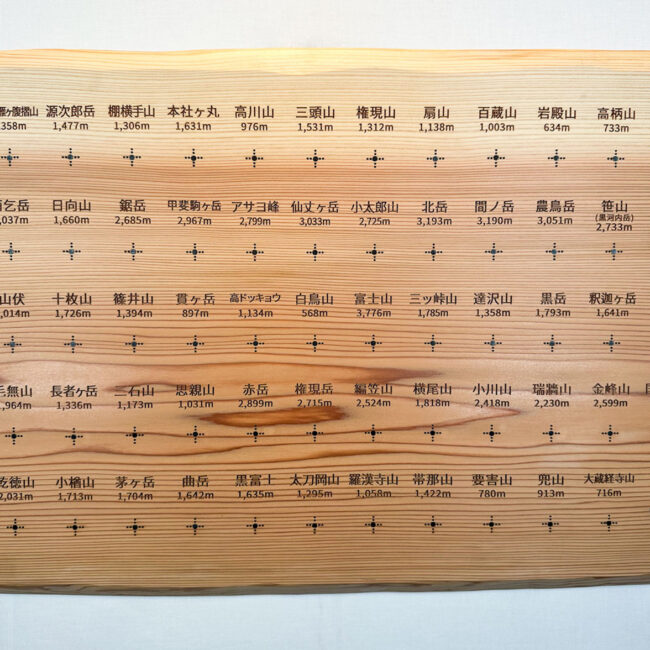 雁ヶ腹摺山 源次郎岳 棚横手山 本社ヶ丸 高川山 三頭山 権現山 扇山 百蔵山 岩殿山 高柄山
358m 1,477m 1,306m 1,631m 976m 1,531m 1,312m 1,138m 1,003m 634m 733m
乞岳 日向山 鋸岳 甲斐駒ヶ岳 アサヨ峰 仙丈ヶ岳 小太郎山 北岳 間ノ岳 農鳥岳 笹山
(黒河内岳)
,037m 1,660m 2,685m 2,967m 2,799m 3,033m 2,725m 3,193m 3,190m 3,051m 2,733m
山伏 十枚山 篠井山 貫ヶ岳 高ドッキョウ 白鳥山 富士山 三ッ峠山 達沢山 黒岳 釈迦ヶ岳
,014m 1,726m 1,394m 897m 1,134m 568m 3,776m 1,785m 1,358m 1,793m 1,641m
毛無山 長者ヶ岳 三石山 思親山 赤岳 権現岳 編笠山 横尾山 小川山 瑞牆山 金峰山
1,964m 1,336m 1,173m 1,031m 2,899m 2,715m 2,524m 1,818m 2,418m 2,230m 2,599m
乾徳山 小楢山 茅ヶ岳 曲岳 黒富士 太刀岡山 羅漢寺山 帯那山 要害山 兜山 大蔵経寺山
2,031m 1,713m 1,704m 1,642m 1,635m 1,295m 1,058m 1,422m 780m 913m 716m